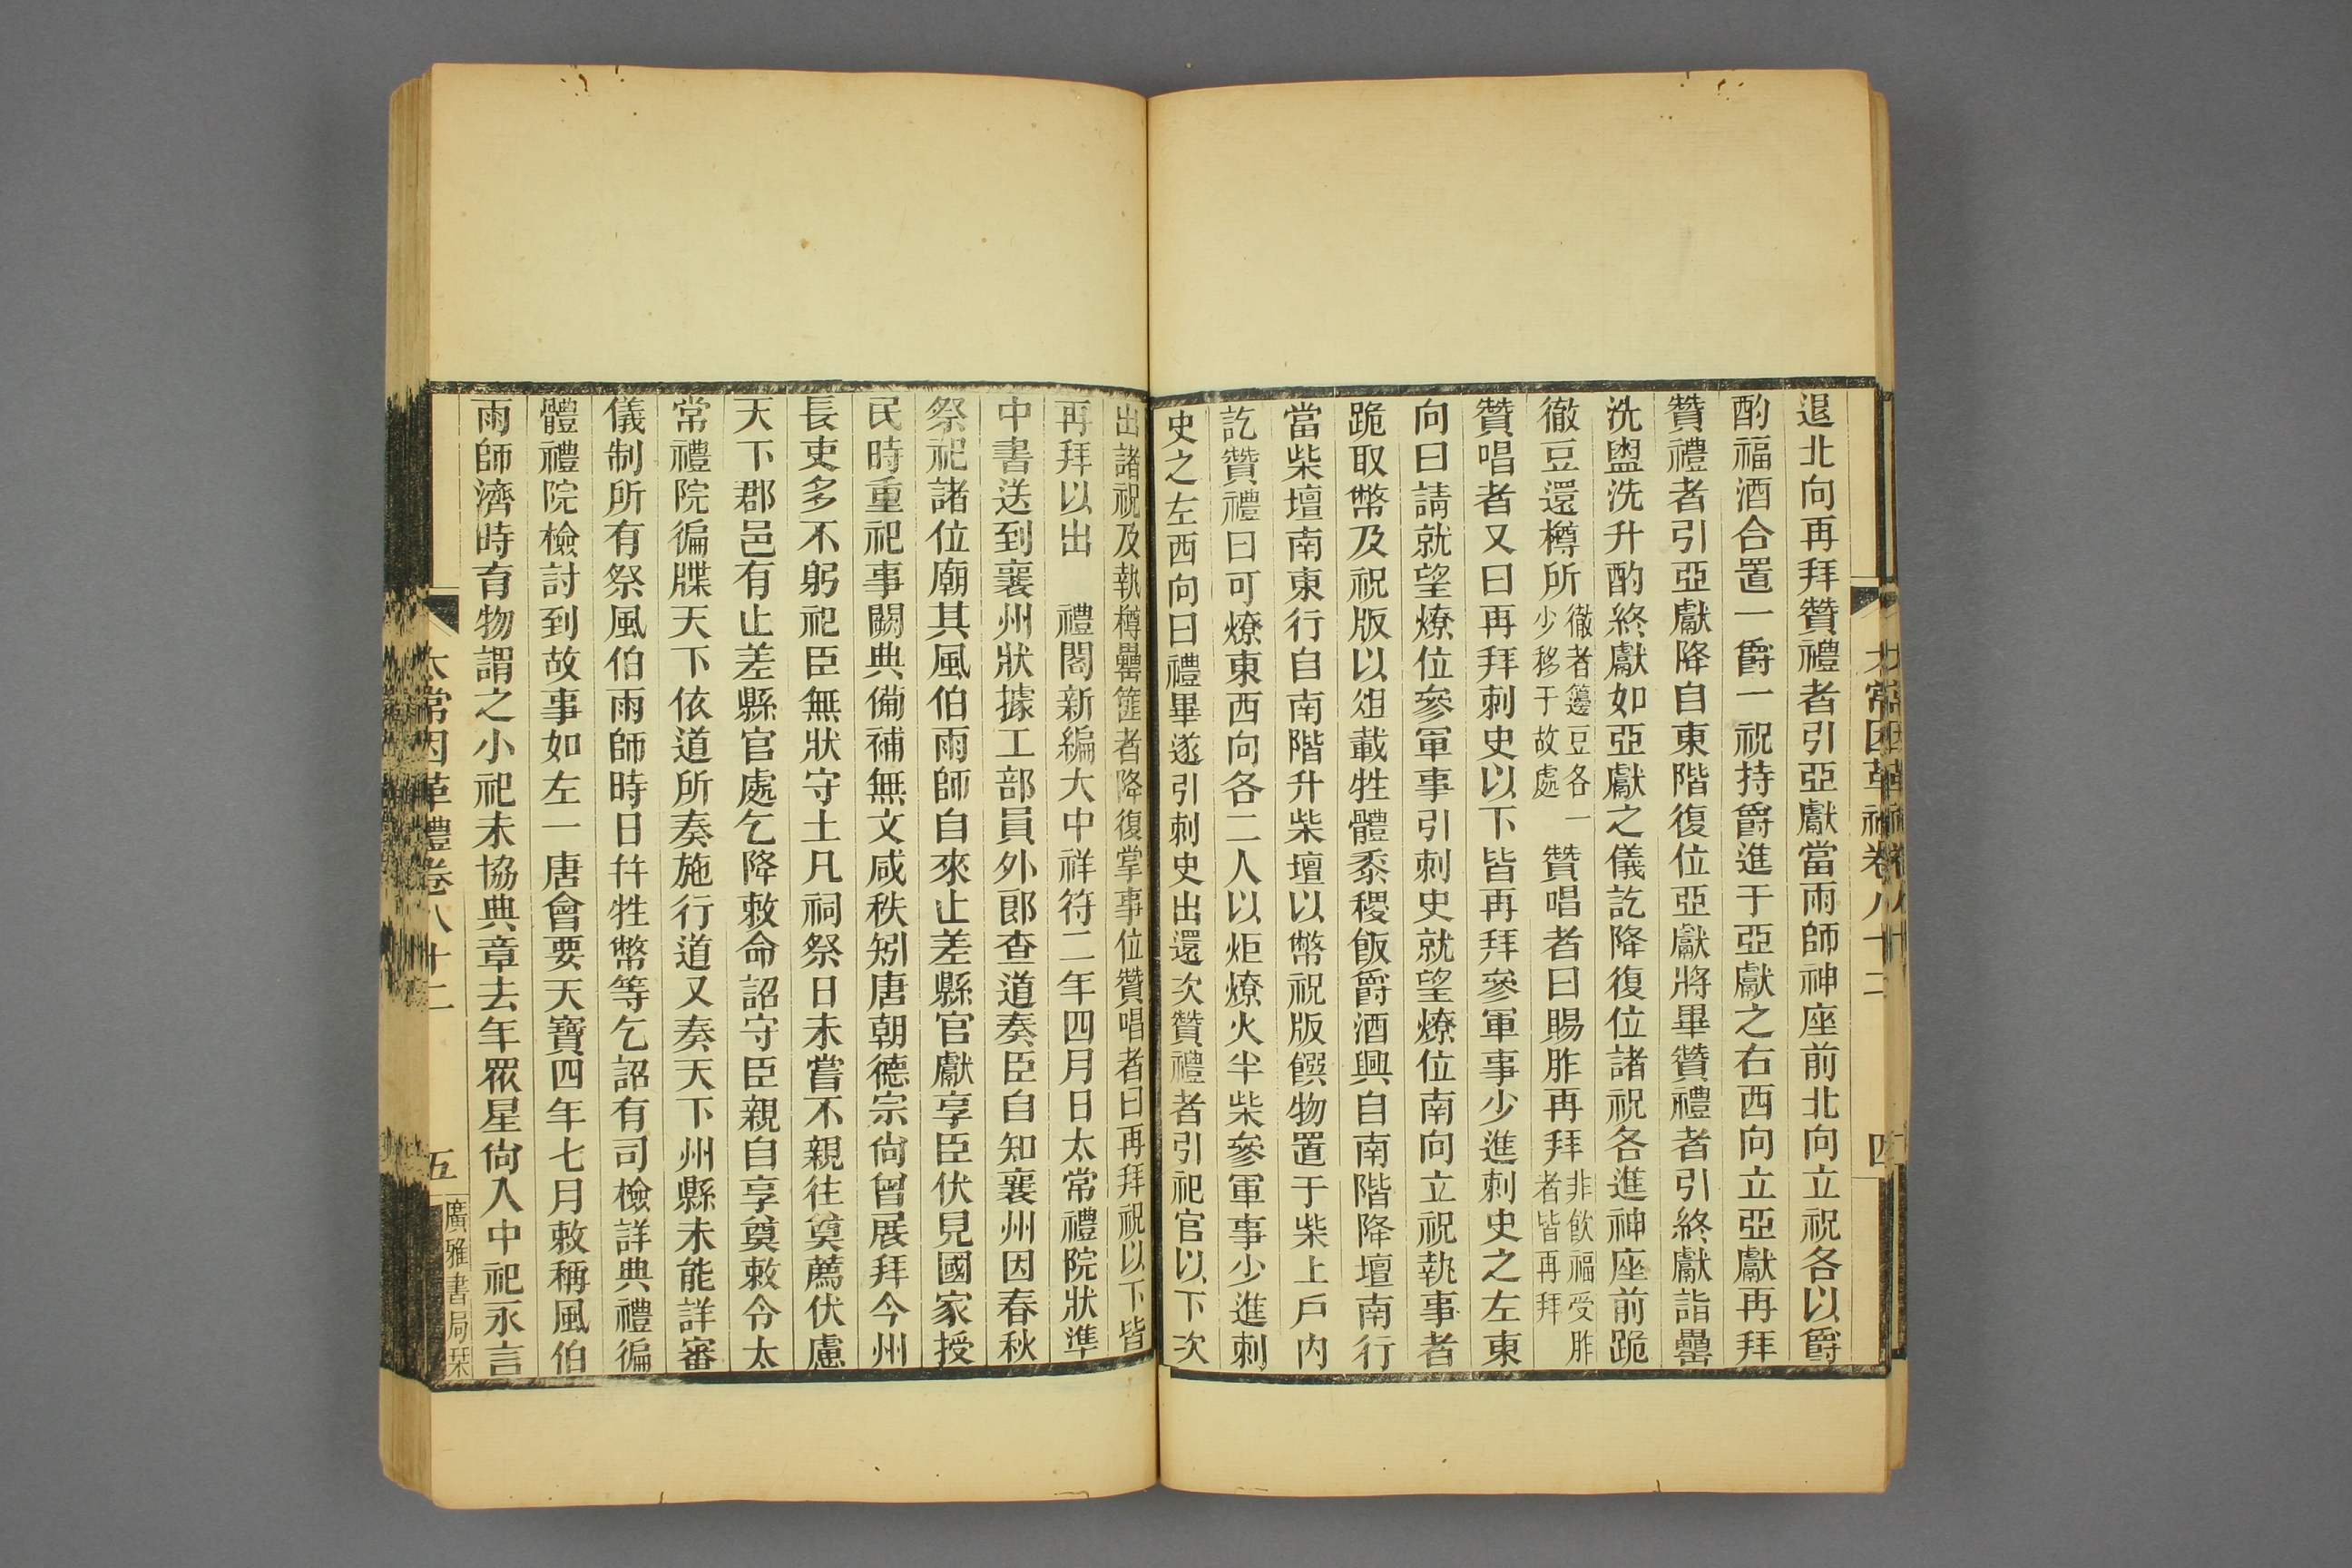 退北向再拜贊禮者引亞獻當雨師神座前北向立祝各以爵
酌福酒合置一爵一祝持爵進于亞獻之右西向立亞獻再拜
贊禮者引亞獻降自東階復位亞獻將畢贊禮者引終獻詣罍
洗盥洗升酌終獻如亞獻之儀訖降復位諸祝各進神座前跪
徹豆還樽所徹者籩豆各一少移于故處贊唱者曰賜胙再拜非飲福受胙者皆再拜
贊唱者又曰再拜刺史以下皆再拜參軍事少進刺史之左東
向曰請就望燎位參軍事引刺史就望燎位南向立祝執事者
跪取幣及祝版以俎載牲體黍稷飯爵酒興自南階降壇南行
當柴壇南東行自南階升柴壇以幣祝版饌物置于柴上戶內
訖贊禮曰可燎東西向各二人以炬燎火半柴參軍事少進刺
史之左西向曰禮畢遂引刺史出還次贊禮者引祀官以下次
出諸祝及執樽罍篚者降復掌事位贊唱者曰再拜祝以下皆
再拜以出　禮閣新編大中祥符二年四月日太常禮院狀準
中書送到襄州狀據工部員外郎查道奏臣自知襄州因春秋
祭祀諸位廟其風伯雨師自來止差縣官獻享臣伏見國家授
民時重祀事闕典備補無文咸秩矧唐朝德宗尙曾展拜今州
長吏多不躬祀臣無狀守土凡祠祭日未嘗不親往奠薦伏慮
天下郡邑有止差縣官處乞降敕命詔守臣親自享奠敕令太
常禮院徧牒天下依道所奏施行道又奏天下州縣未能詳審
儀制所有祭風伯雨師時日幷牲幣等乞詔有司檢詳典禮徧
體禮院檢討到故事如左一唐會要天寶四年七月敕稱風伯
雨師濟時育物謂之小祀未協典章去年眾星尙入中祀永言
太常因革禮卷八十二
五
廣雅書局栞
四